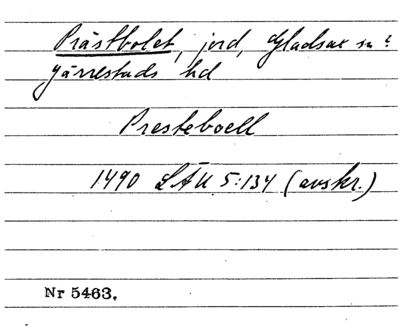 Prästbolet, jord, Gladsax sn
Järrestads hd
Presteboell
1490 LÄU 5:134 (avskr.)
Nr 5463.